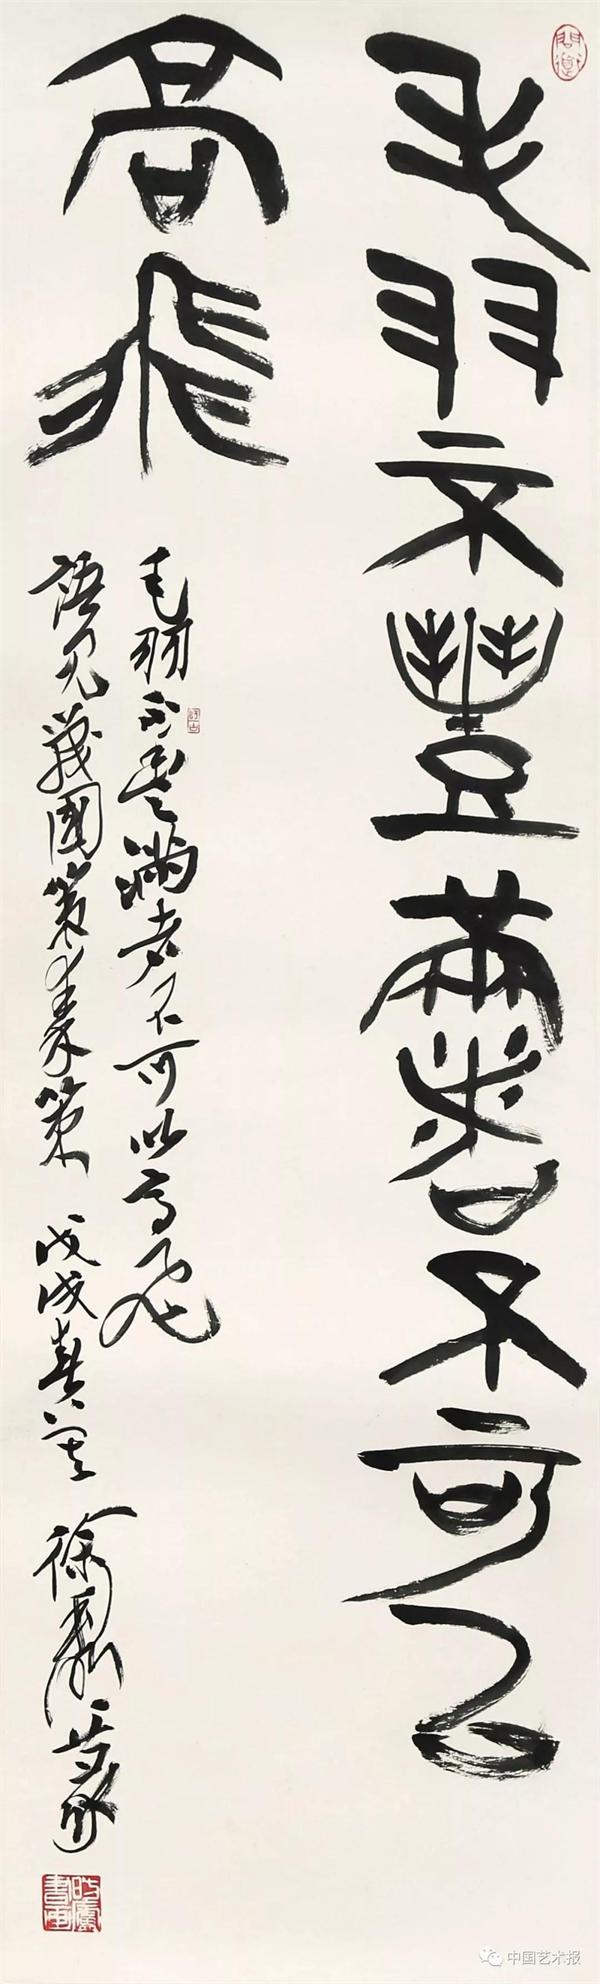 毛羽不豐滿者不可以
高飛
毛羽不豐滿者不可以高飛
語見戰國策秦策 戊戌春 徐 篆
中国艺术报